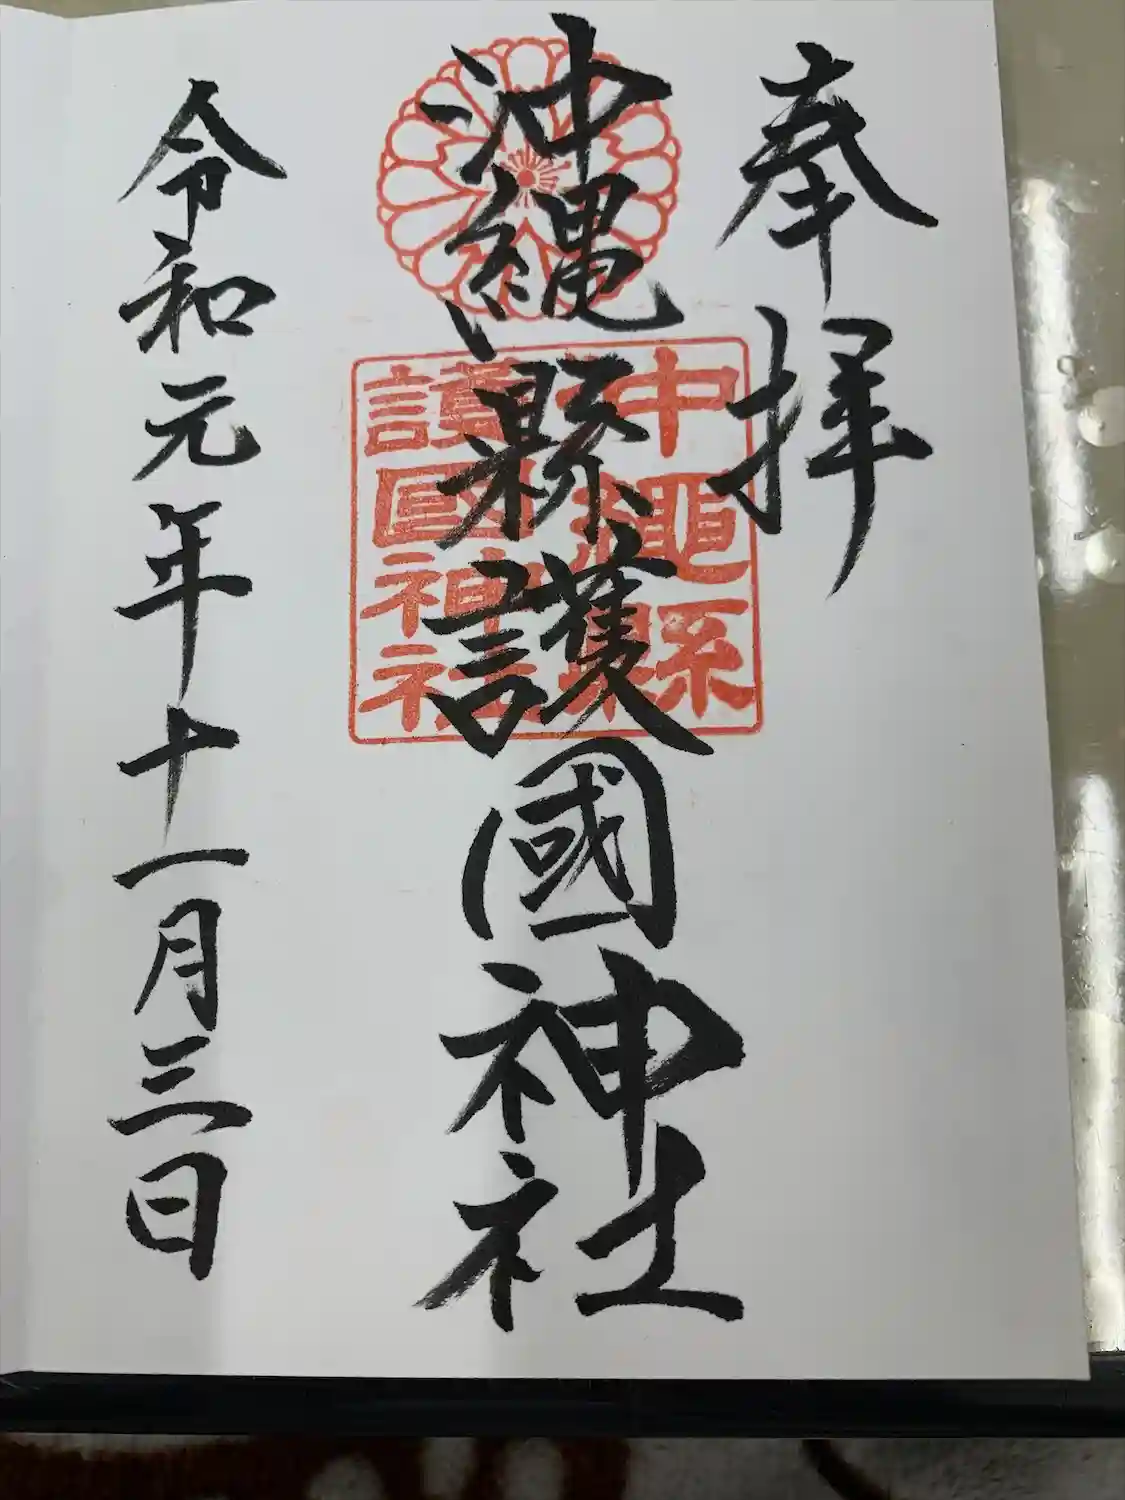 奉拝
沖縄縣護國神社
沖繩縣
護國神社
令和元年十一月三日